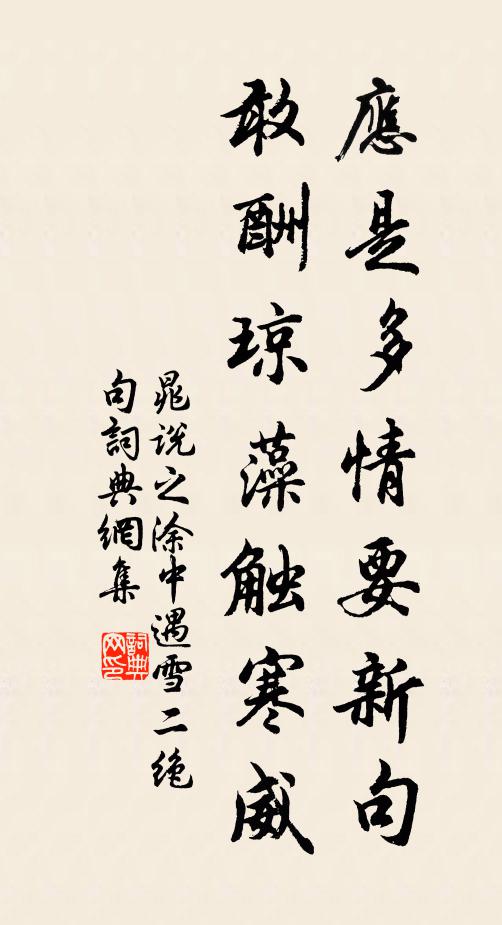 應是多情要新句
敢酬琼藻触寒威
晁說之涂中遇雪二絶
句詞典網集
詞典网印